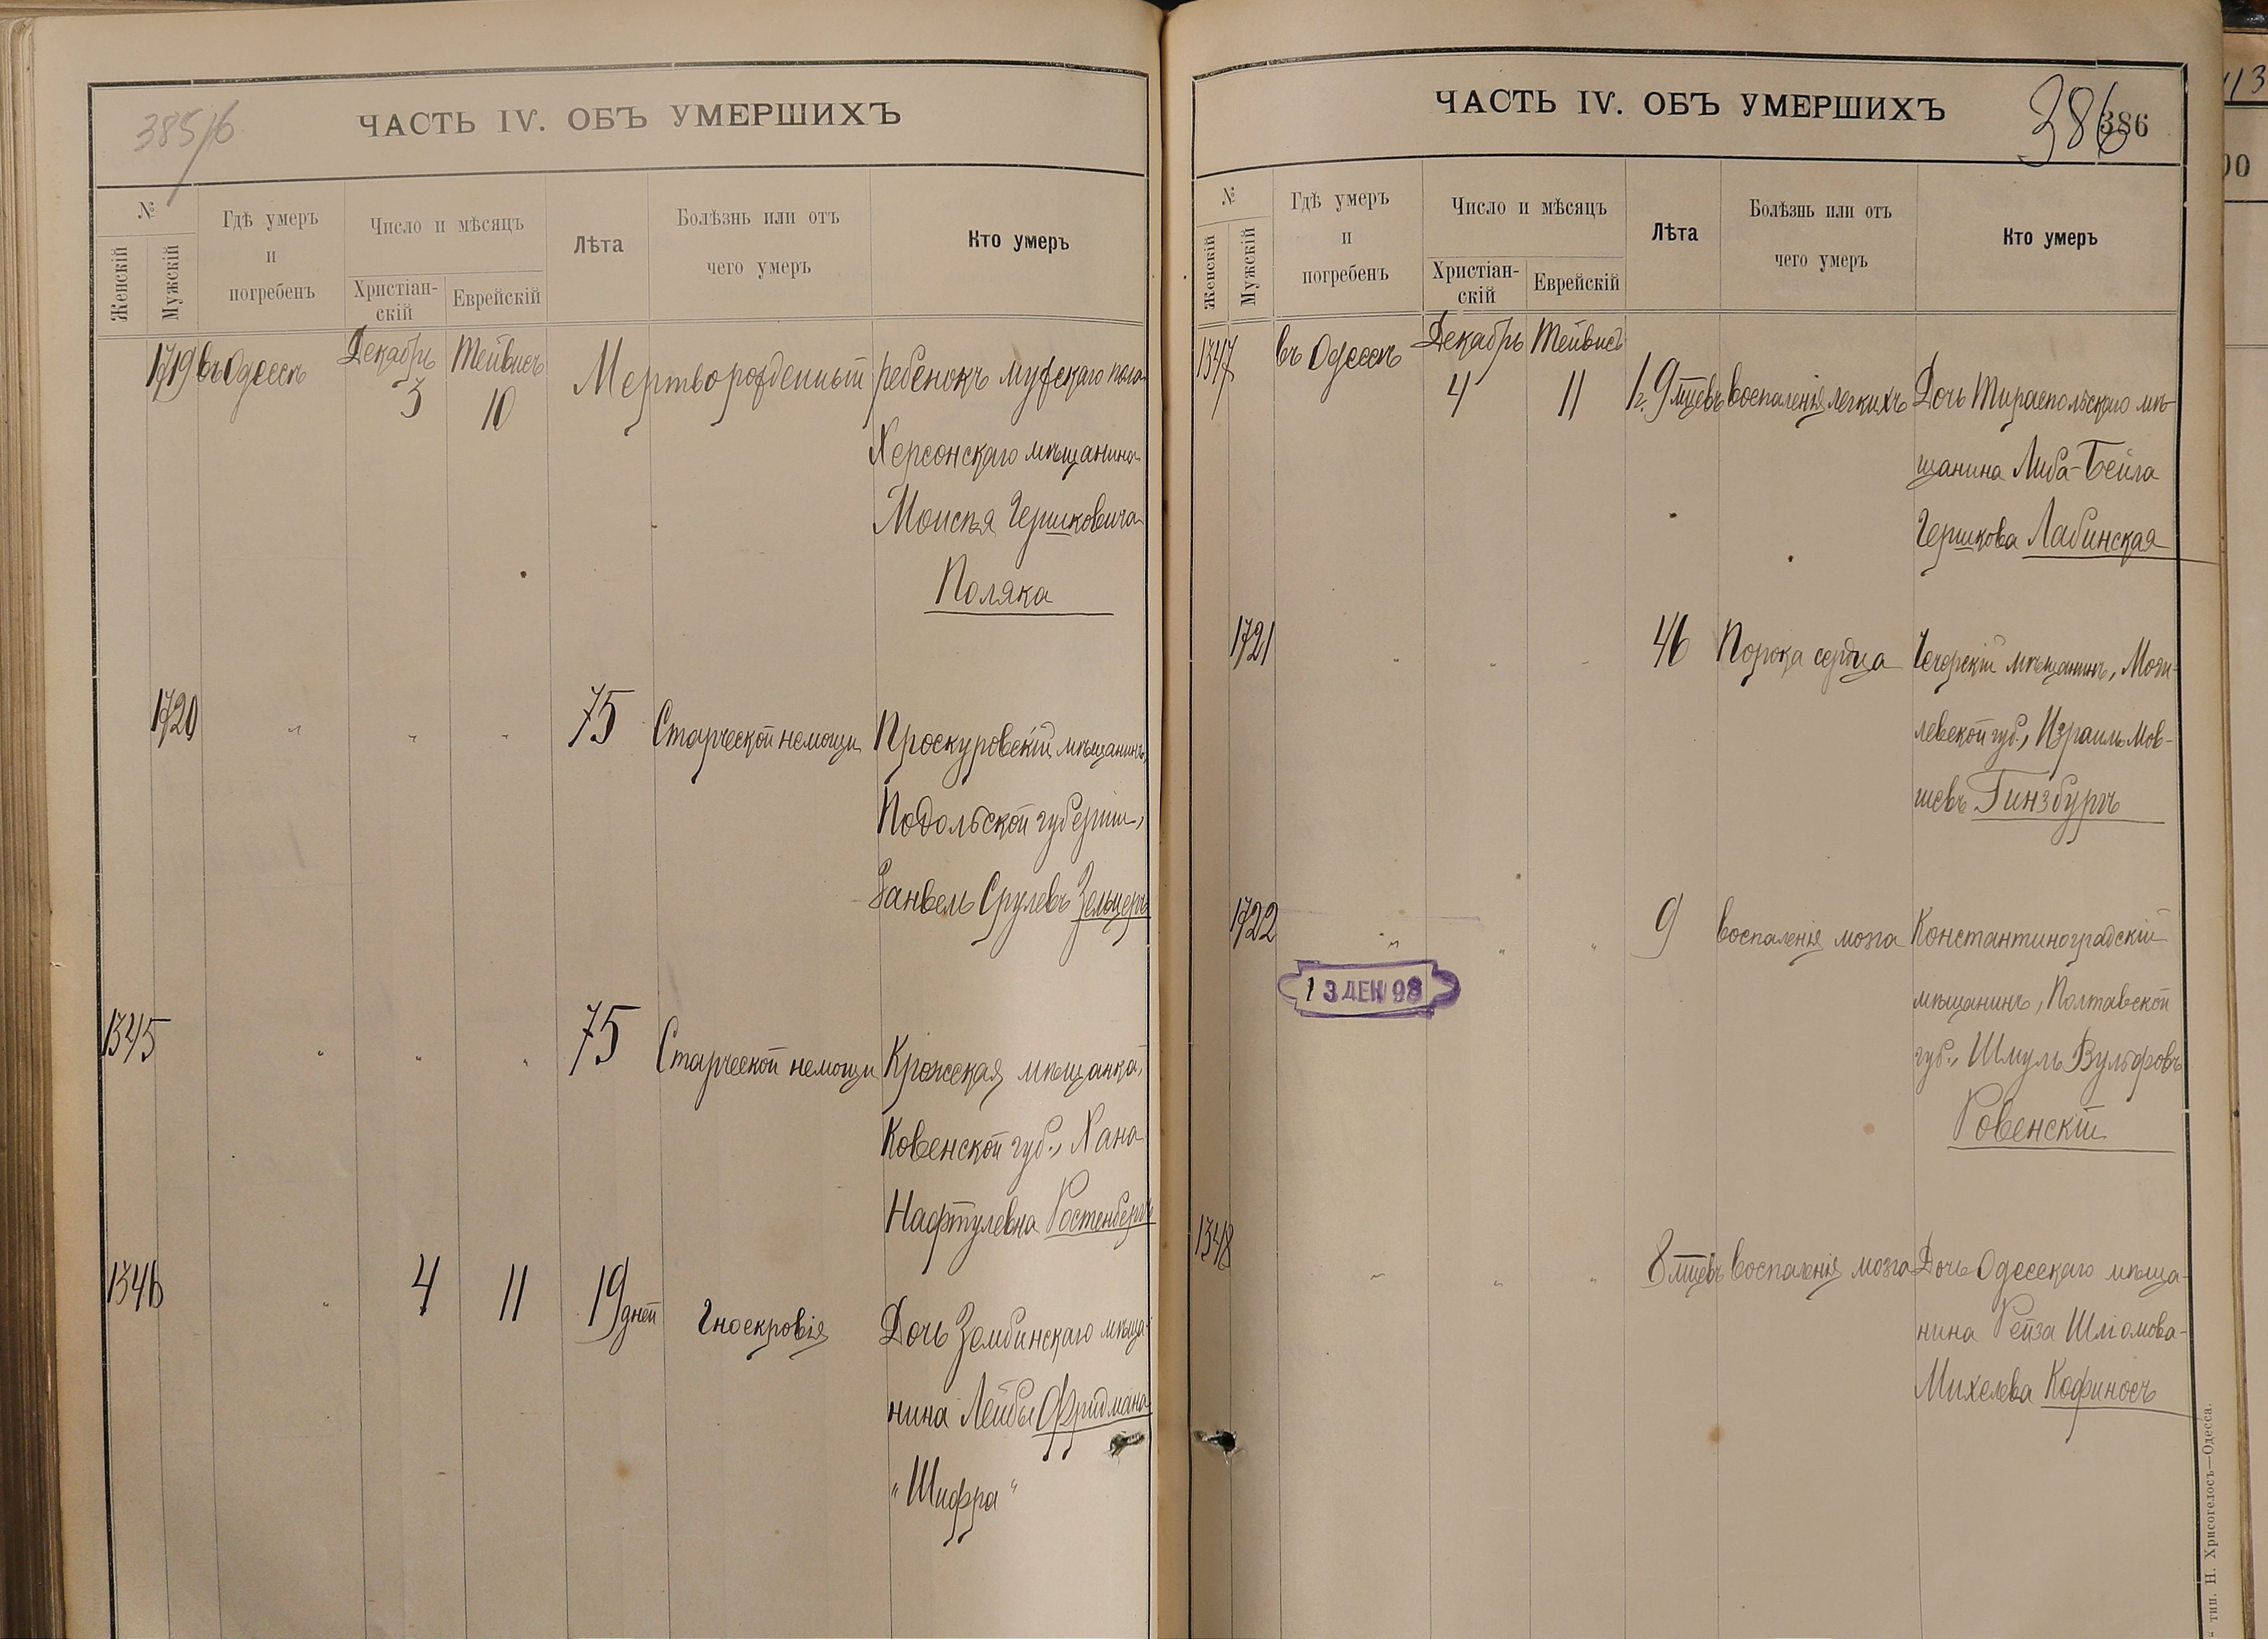 385/6
ЧАСТЬ IV. ОБЪ УМЕРШИХЪ
№
Женскій
Мужскій
Гдѣ умеръ
и
погребенъ
Число и мѣсяцъ
Христіан-
скій
Еврейскій
Лѣта
Болѣзнь или отъ
чего умеръ
Кто умеръ
1719 въ Одессѣ Декабрь 3 Тейвисъ 10 Мертворожденный ребенокъ мужскаго пола
Херсонскаго мѣщанина
Моисѣя Гершковича
Поляка
1720 " " " 75 Старческой немощи Проскуровскій мѣщанинъ,
Подольской губерніи,
Занвель Срулевъ Зельцеръ
1345 " " " 75 Старческой немощи Крожская мѣщанка,
Ковенской губ., Хана
Нафтулевна Ростенбергъ
1346 " 4 11 19 дней Гноекровія Дочь Зембинскаго мѣща-
нина Лейбы Фридмана
"Шифра"
ЧАСТЬ IV. ОБЪ УМЕРШИХЪ
386
386
№
Женскій
Мужскій
Гдѣ умеръ
и
погребенъ
Число и мѣсяцъ
Христіан-
скій
Еврейскій
Лѣта
Болѣзнь или отъ
чего умеръ
Кто умеръ
1347 въ Одессѣ Декабрь 4 Тейвисъ 11 1 г. 9 мцевъ воспаленія легкихъ Дочь Тираспольскаго мѣ-
щанина Либа-Бейла
Гершкова Лабинская
1721 " " " 46 Порока сердца Чечерскій мѣщанинъ, Моги-
левской губ., Израиль Мов-
шевъ Гинзбургъ
1722 " " " 9 воспаленія мозга Константиноградскій
мѣщанинъ, Полтавской
губ., Шмуль Вульфовъ
Ровенскій
13 ДЕК 98
1348 " " " 8 мцевъ воспаленія мозга Дочь Одесскаго мѣща-
нина Рейза Шліомова-
Михелева Кофиносъ
" тип. Н. Хрисогелосъ—Одесса.